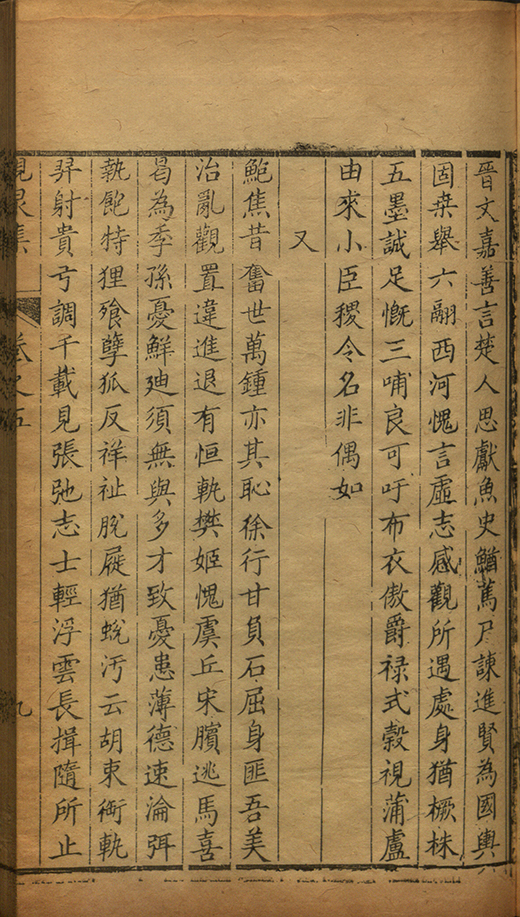 晉文嘉善言楚人思獻魚史鰌薦尸諫進賢為國輿
固桒舉六翮西河愧言虛志感觀所遇處身猶橛株
五墨誠足慨三哺良可吁布衣傲爵祿式榖視蒲盧
由來小臣稷令名非偶如
又
鮑焦昔奮世萬鍾亦其恥徐行甘負石屈身匪吾美
治亂觀置違進退有恒軌樊姬愧虞丘宋臏逃馬喜
曷為季孫憂鮮廸須無與多才致憂患薄德速淪弭
執飽特狸飱孽狐反祥祉脫屣猶蛻汚云胡束銜軌
羿射貴弓調千載見張弛志士輕浮雲長揖隨所止
卷之五
九